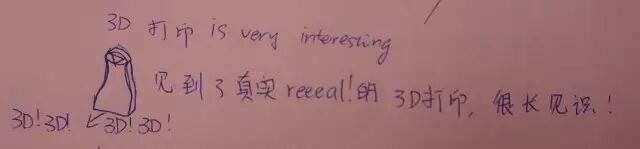 3D 打印 is very interesting
见到了真实 reeeal!的 3D打印, 很长见识!
3D!3D! 3D!3D!